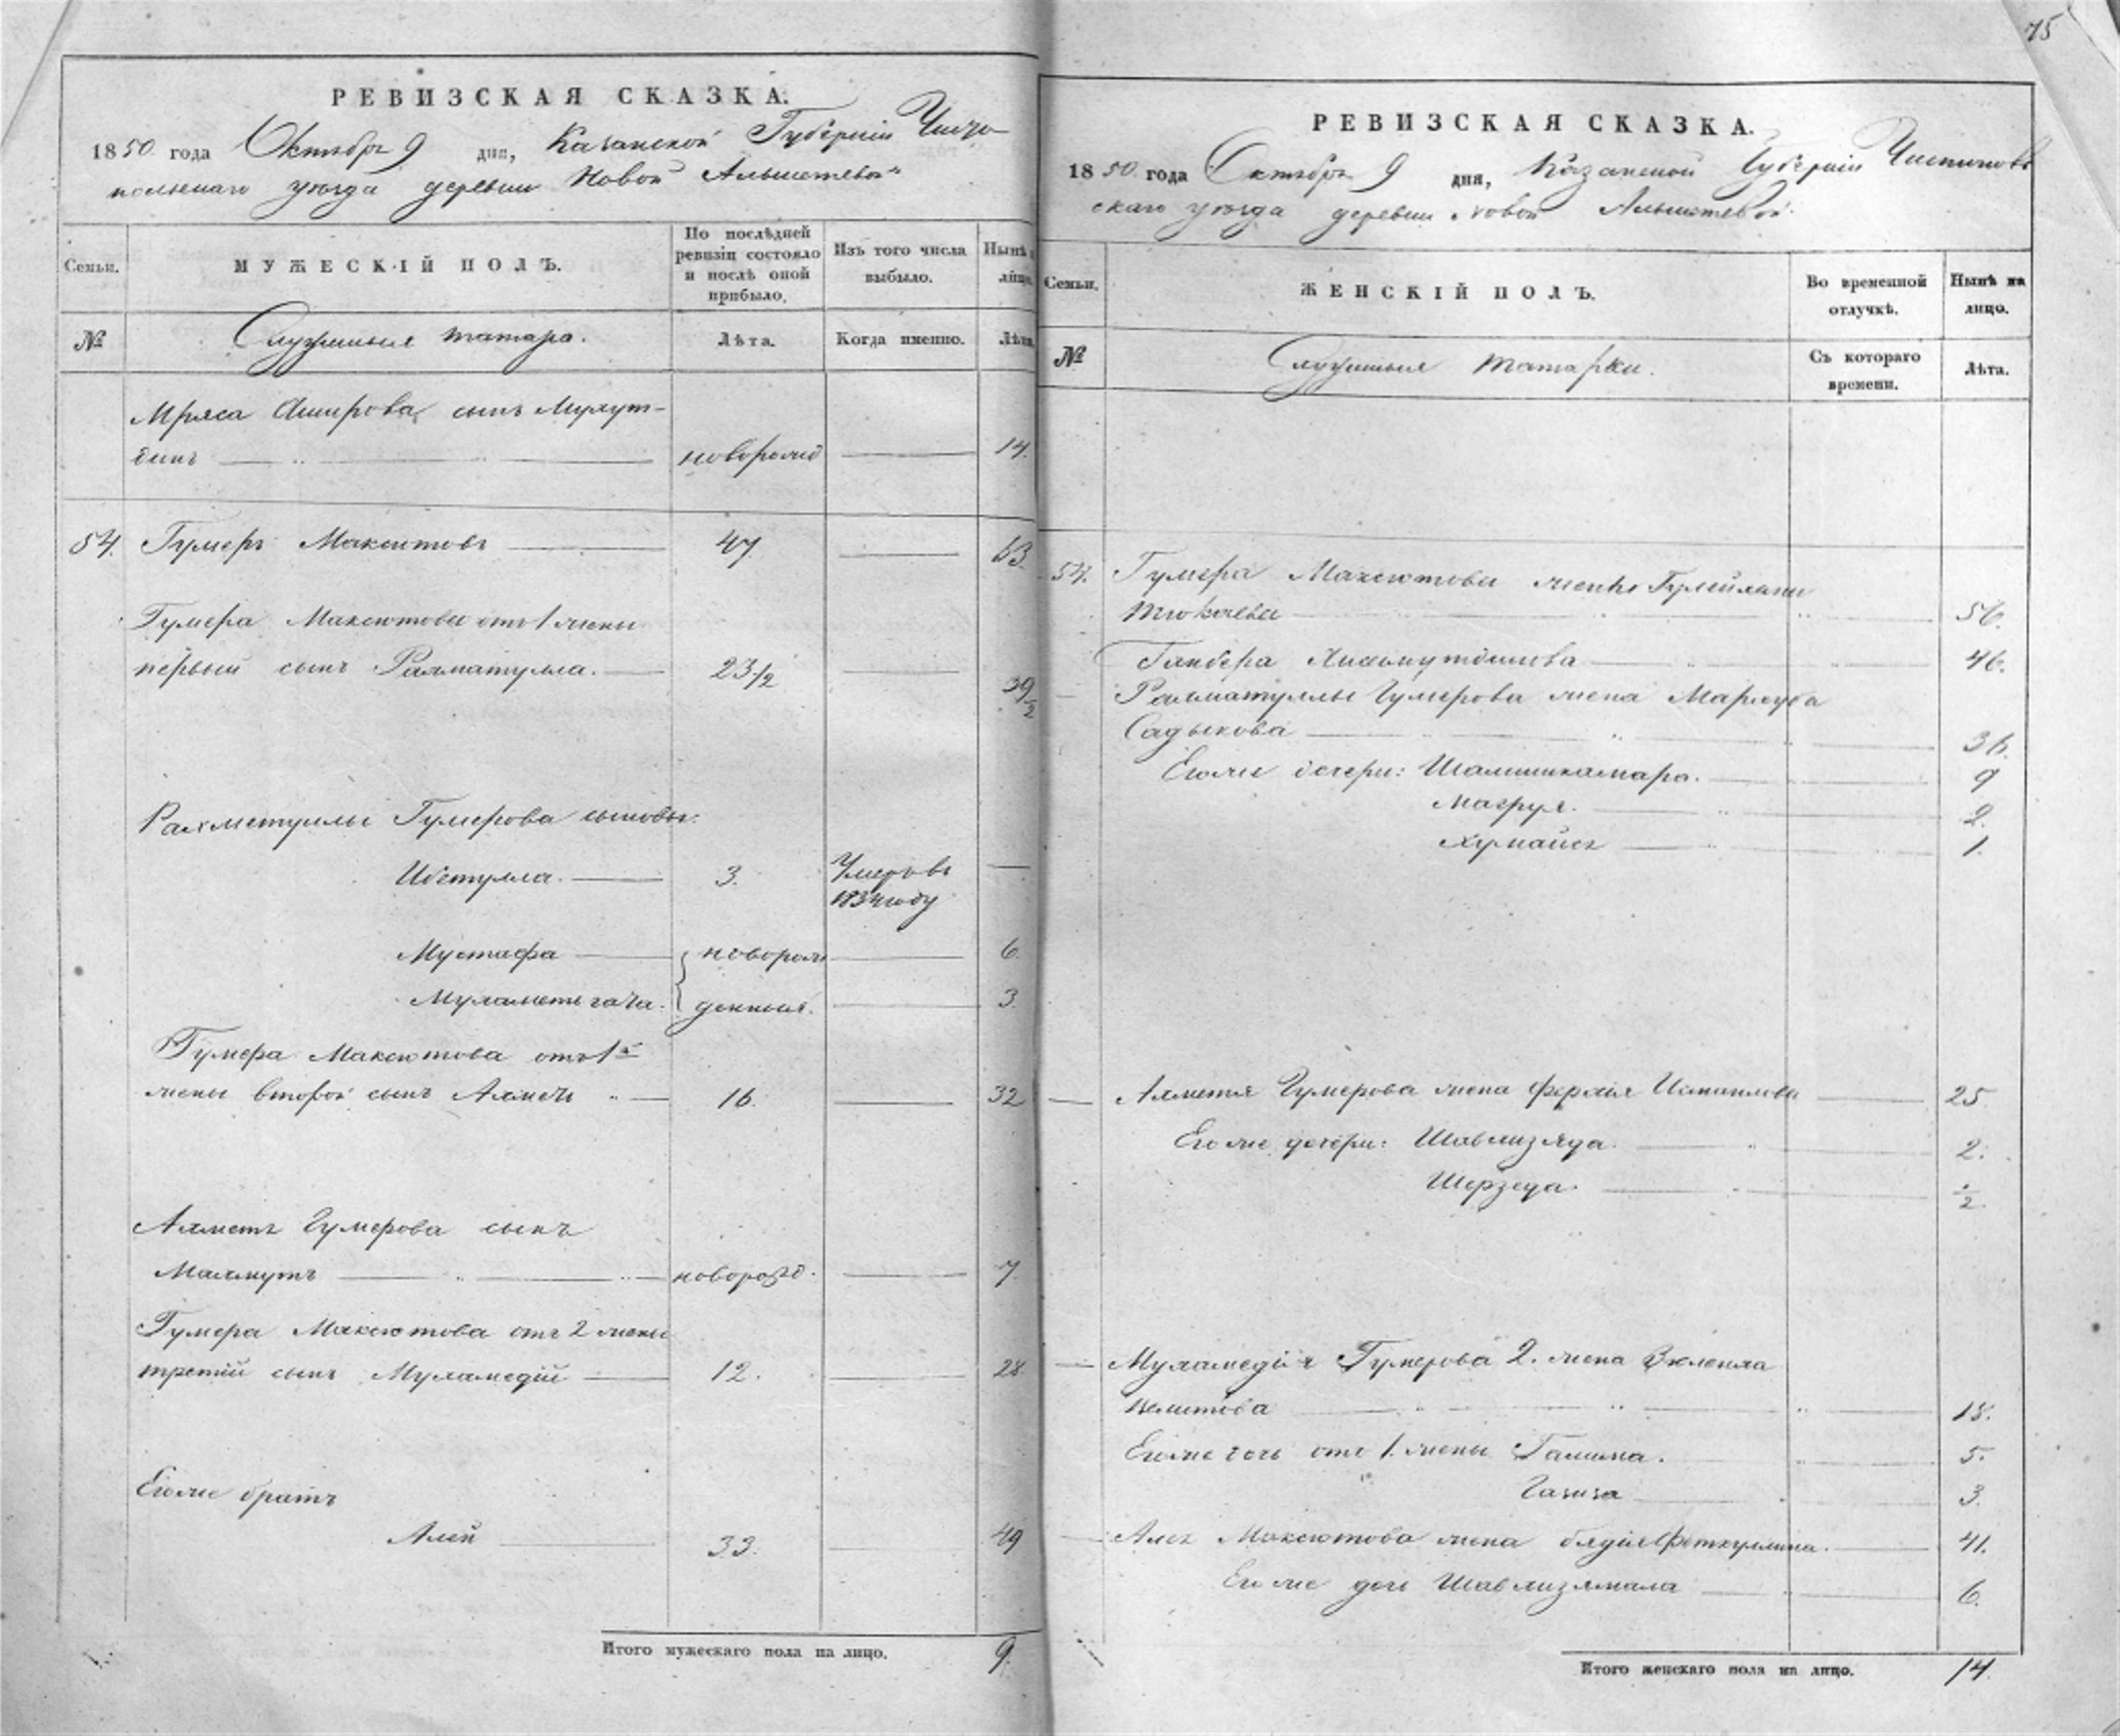 РЕВИЗСКАЯ СКАЗКА.
1850 года Октября 9 дня, Казанской Губерніи Чисто
польскаго уѣзда деревни Новой
Семьи.
МУЖЕСКІЙ ПОЛЪ.
По послѣдней ревизіи состояло и послѣ оной прибыло.
Изъ того числа выбыло.
Нынѣ на лицо.
№
Служилыя татара.
Лѣта.
Когда именно.
Лѣта.
Мряса Амирова сынъ Мухут-
динъ новорожд 14.
54. Гумеръ Максютовъ 47 63.
Гумера Максютова отъ 1 жены
первый сынъ Рахматулла. 23 1/2 39 1/2
Рахметуллы Гумерова сыновья:
3. Умеръ въ
1834 году
Мустафа новорож 6.
денныя. 3.
Гумера Максютова отъ 1й
жены второй сынъ Ахметъ 16. 32
Ахметя Гумерова сынъ
Махмутъ новорожд. 7.
Гумера Максютова отъ 2 жены
третій сынъ Мухамедій 12. 28
Его же братъ
Алей 33. 49
Итого мужескаго пола на лицо. 9.
75
РЕВИЗСКАЯ СКАЗКА.
1850 года Октября 9 дня, Казанской Губерніи Чистополь
скаго уѣзда деревни Новой
Семьи.
ЖЕНСКІЙ ПОЛЪ.
Во временной отлучкѣ.
Нынѣ на лицо.
№
Служилыя татарки.
Съ котораго времени.
Лѣта.
54. Гумера Максютова жены
Тюкаева 56.
46.
Рахматуллы Гумерова жена Марзуба
Садыкова 36.
Его же дочери: Шамшикамара. 9
2.
1.
Ахметя Гумерова жена Исмаилова 25
Его же дочери: 2.
1/2
Мухамедія Гумерова 2. жена
18.
Его же дочь отъ 1. жены Галима. 5.
Газиза 3.
Алея Максютова жена 41.
Его же дочь 6.
Итого женскаго пола на лицо. 14.